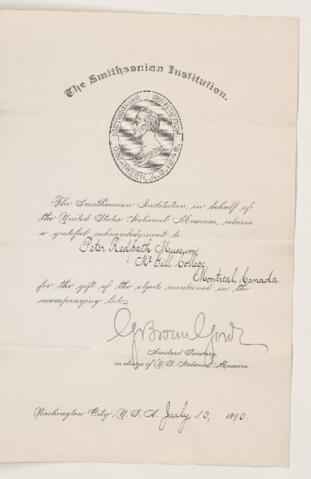 The Smithsonian Institution.
The Smithsonian Institution, in behalf of
the United States National Museum, returns
a grateful acknowledgment to
Peter Redpath Museum,
McGill College,
Montreal, Canada
for the gift of the objects mentioned in the
accompanying list.
G Brown Goode
Assistant Secretary,
in charge of U. S. National Museum.
Washington City, U. S. A. July 10, 1890.